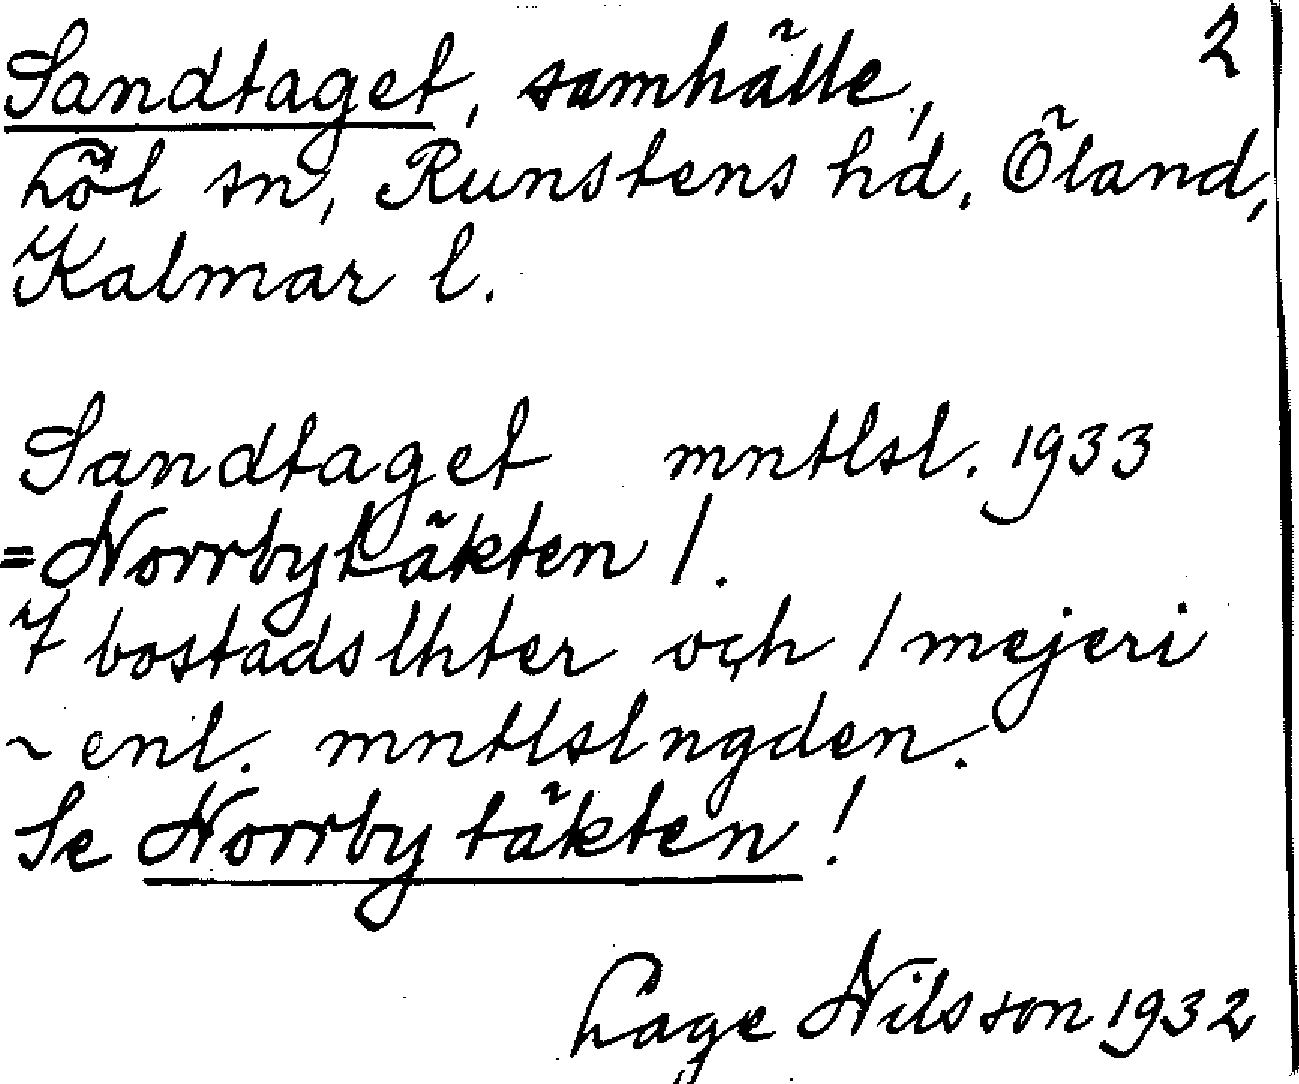 2
Sandtaget, samhälle,
Löt sn, Runstens hd, Öland,
Kalmar l.
Sandtaget mntlsl. 1933
=Norrbytäkten !.
7 bostadslhter och 1 mejeri
~ enl. mntlslngden.
Se Norrby täkten!
Lage Nilsson 1932